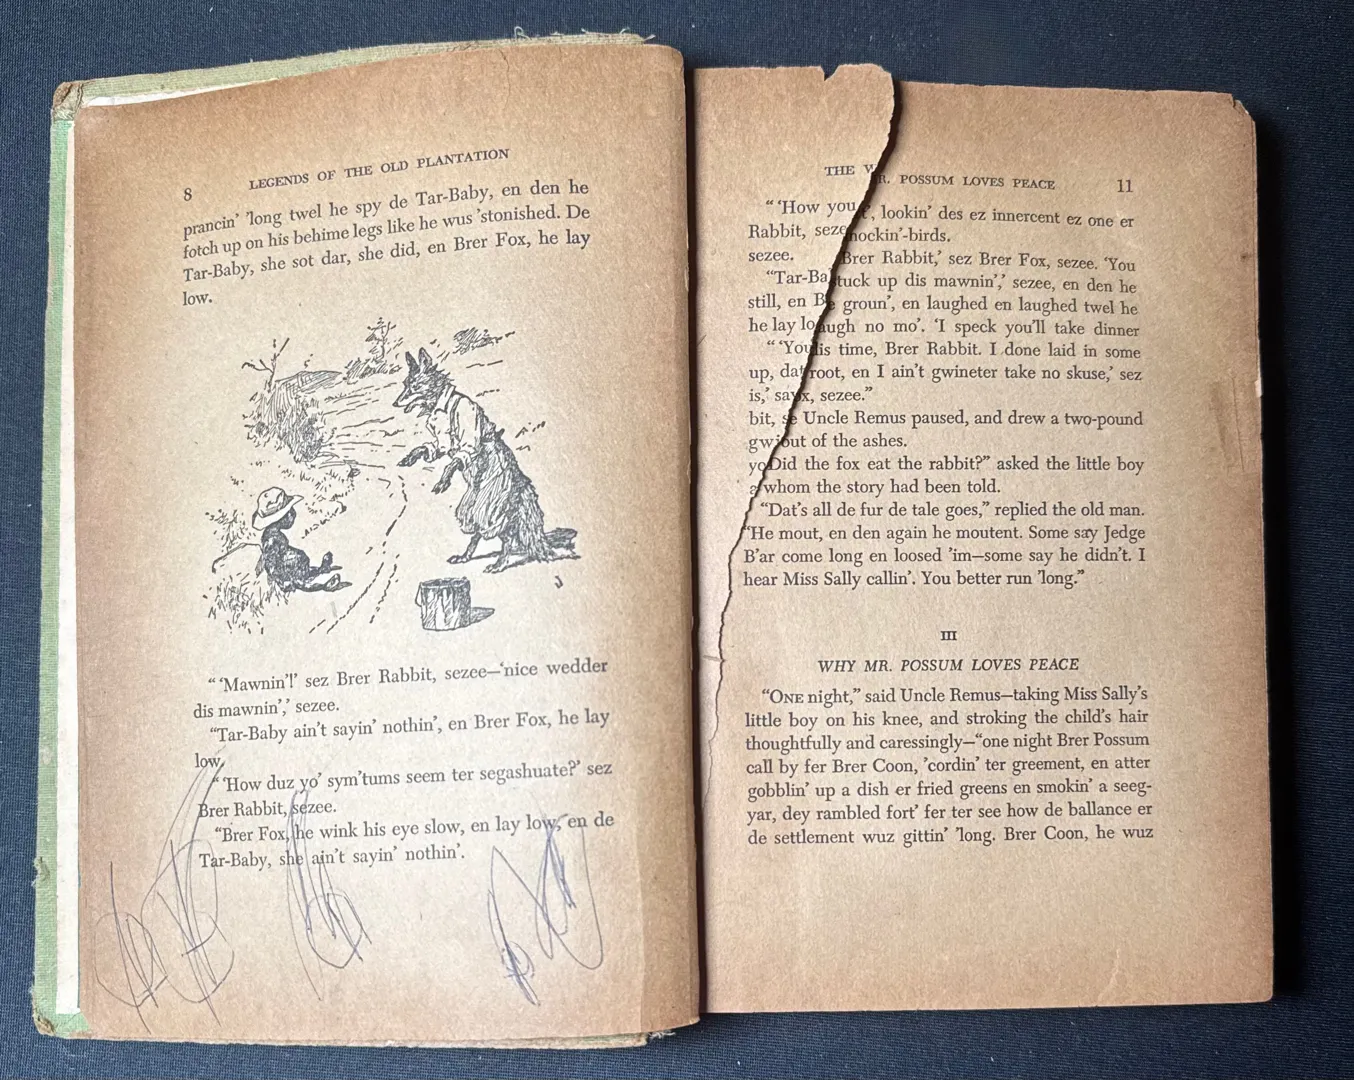 8 LEGENDS OF THE OLD PLANTATION
prancin' 'long twel he spy de Tar-Baby, en den he
fotch up on his behime legs like he wus 'stonished. De
Tar-Baby, she sot dar, she did, en Brer Fox, he lay
low.
"'Mawnin'!' sez Brer Rabbit, sezee—'nice wedder
dis mawnin',' sezee.
"Tar-Baby ain't sayin' nothin', en Brer Fox, he lay
low.
"'How duz yo' sym'tums seem ter segashuate?' sez
Brer Rabbit, sezee.
"Brer Fox, he wink his eye slow, en lay low, en de
Tar-Baby, she ain't sayin' nothin'.
THE W R. POSSUM LOVES PEACE 11
"'How you t', lookin' des ez innercent ez one er
Rabbit, seze mockin'-birds.
sezee. Brer Rabbit,' sez Brer Fox, sezee. 'You
"Tar-Ba tuck up dis mawnin',' sezee, en den he
still, en B e groun', en laughed en laughed twel he
he lay lo augh no mo'. 'I speck you'll take dinner
"'You is time, Brer Rabbit. I done laid in some
up, dat root, en I ain't gwineter take no skuse,' sez
is,' say x, sezee."
bit, se Uncle Remus paused, and drew a two-pound
gwi out of the ashes.
yo Did the fox eat the rabbit?" asked the little boy
a whom the story had been told.
"Dat's all de fur de tale goes," replied the old man.
"He mout, en den again he moutent. Some say Jedge
B'ar come long en loosed 'im—some say he didn't. I
hear Miss Sally callin'. You better run 'long."
III
WHY MR. POSSUM LOVES PEACE
"ONE night," said Uncle Remus—taking Miss Sally's
little boy on his knee, and stroking the child's hair
thoughtfully and caressingly—"one night Brer Possum
call by fer Brer Coon, 'cordin' ter greement, en atter
gobblin' up a dish er fried greens en smokin' a seeg-
yar, dey rambled fort' fer ter see how de ballance er
de settlement wuz gittin' 'long. Brer Coon, he wuz